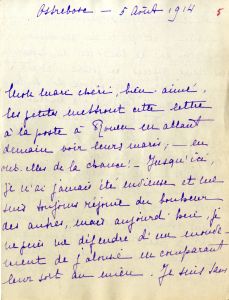 5 Août 1914
5
Mon Marc chéri, bien aimé,
les petites mettront cette lettre
à la poste à Rouen en allant
demain voir leurs maris, — en
ont-elles de la chance! — Jusqu'ici,
je n'ai jamais été envieuse et me
suis toujours réjouie du bonheur
des autres, mais aujourd'hui, je
ne puis me défendre d'un mouve-
ment de jalousie en comparant
leur sort au mien. Je suis sans